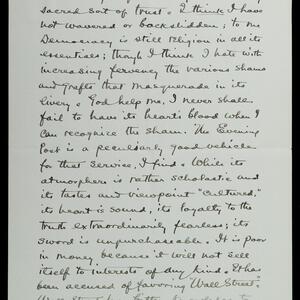 sacred sort of trust. I think I have
not wavered or backslidden; to me
Democracy is still religion in all its
essentials; though I think I hate with
increasing fervency the various shams
and grafts that masquerade in its
livery. God help me, I never shall
fail to have its heart's blood when I
can recognize the sham. The Evening
Post is a peculiarly good vehicle
for that service, I find. While its
atmosphere is rather scholastic and
its tastes and viewpoint "cultured,"
its heart is sound, its loyalty to the
truth extraordinarily fearless; its
sword is unpurchaseable. It is poor
in money, because it will not sell
itself to interests of any kind. It has
been accused of favoring "Wall Street".